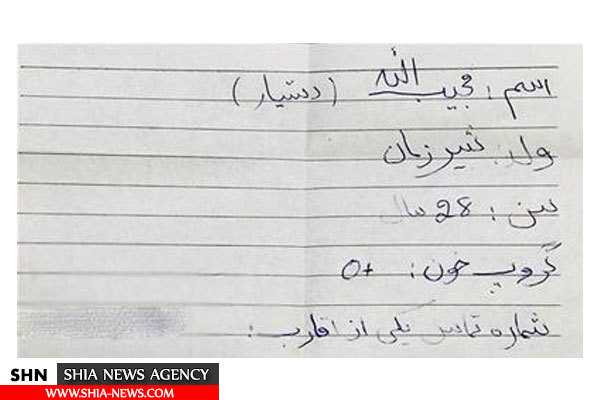 اسم: مجیب الله (دستیار)
ولد: شیر زمان
سن: 28 سال
گروپ خون: O+
شماره تماس یکی از اقارب:
SHN SHIA NEWS AGENCY
WWW.SHIA-NEWS.COM